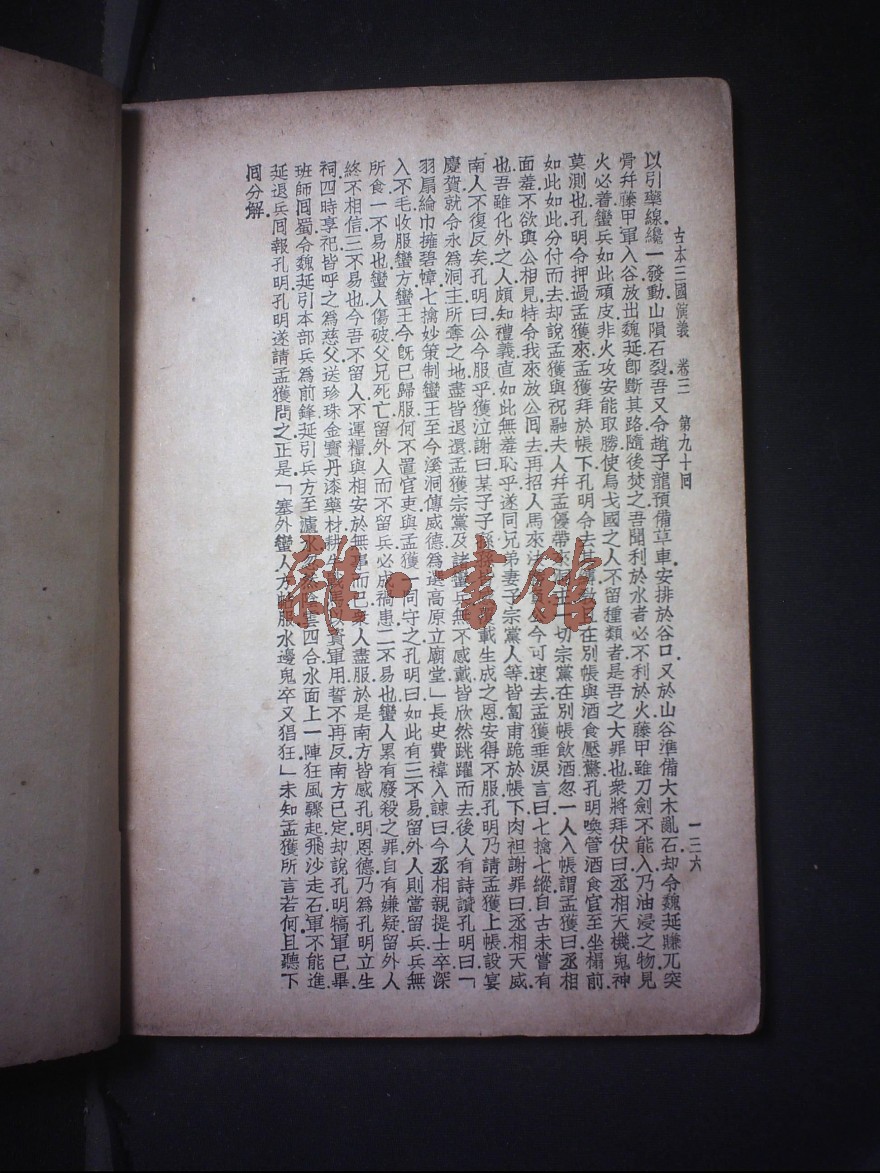 古本三國演義 卷三 第九十回 一三六
以引藥線纔一發動山隕石裂吾又令趙子龍預備草車安排於谷口又於山谷準備大木亂石却令魏延賺兀突
骨幷藤甲軍入谷放出魏延卽斷其路隨後焚之吾聞利於水者必不利於火藤甲雖刀劍不能入乃油浸之物見
火必着蠻兵如此頑皮非火攻安能取勝使烏戈國之人不留種類者是吾之大罪也衆將拜伏曰丞相天機鬼神
莫測也孔明令押過孟獲來孟獲拜於帳下孔明令去其縛教且在別帳與酒食壓驚孔明喚管酒食官至坐榻前
如此如此分付而去却說孟獲與祝融夫人幷孟優帶來一切宗黨在別帳飲酒忽一人入帳謂孟獲曰丞相
面羞不欲與公相見特令我來放公囘去再招人馬來決公今可速去孟獲垂淚言曰七擒七縱自古未嘗有
也吾雖化外之人頗知禮義直如此無羞恥乎遂同兄弟妻子宗黨人等皆匍匐跪於帳下肉袒謝罪曰丞相天威
南人不復反矣孔明曰公今服乎獲泣謝曰某子子孫載生成之恩安得不服孔明乃請孟獲上帳設宴
慶賀就令永爲洞主所奪之地盡皆退還孟獲宗黨及諸蠻兵無不感戴皆欣然跳躍而去後人有詩讚孔明曰「
羽扇綸巾擁碧幢七擒妙策制蠻王至今溪洞傳威德爲選高原立廟堂」長史費禕入諫曰今丞相親提士卒深
入不毛收服蠻方蠻王今旣已歸服何不置官吏與孟獲一同守之孔明曰如此有三不易留外人則當留兵兵無
所食一不易也蠻人傷破父兄死亡留外人而不留兵必成禍患二不易也蠻人累有廢殺之罪自有嫌疑留外人
終不相信三不易也今吾不留人不運糧與相安於無事而已衆人盡服於是南方皆感孔明恩德乃爲孔明立生
祠四時享祀皆呼之爲慈父送珍珠金寶丹漆藥材耕牛戰馬以資軍用誓不再反南方已定却說孔明犒軍已畢
班師囘蜀令魏延引本部兵爲前鋒延引兵方至瀘水雲四合水面上一陣狂風驟起飛沙走石軍不能進
延退兵囘報孔明孔明遂請孟獲問之正是「塞外蠻人方帖服水邊鬼卒又猖狂」未知孟獲所言若何且聽下
囘分解
雜·書館